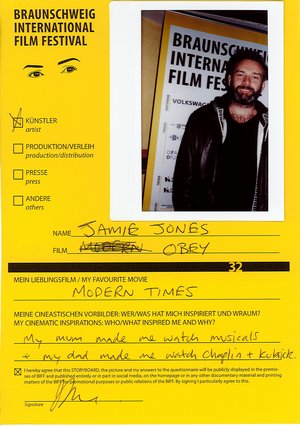 BRAUNSCHWEIG
INTERNATIONAL
FILM FESTIVAL
BRAUNSCHWEIG
INTERNATIONAL
FILM FEST
VOLKSWAG
KÜNSTLER
artist
PRODUKTION/VERLEIH
production/distribution
PRESSE
press
ANDERE
others
NAME JAMIE JONES
FILM OBEY
32
MEIN LIEBLINGSFILM / MY FAVOURITE MOVIE
MODERN TIMES
MEINE CINEASTISCHEN VORBILDER: WER/WAS HAT MICH INSPIRIERT UND WRAUM?
MY CINEMATIC INSPIRATIONS: WHO/WHAT INSPIRED ME AND WHY?
My mum made me watch musicals
+ my dad made me watch Chaplin + Kubrick.
I hereby agree that this STORYBOARD, the picture and my answers to the questionnaire will be publicly displayed in the premises of BIFF and published entirely or in part in social media, on the homepage or in any other documentary material and printing matters of the BIFF for promotional purposes or public relations of the BIFF. By signing I particularly agree to this.
Signature